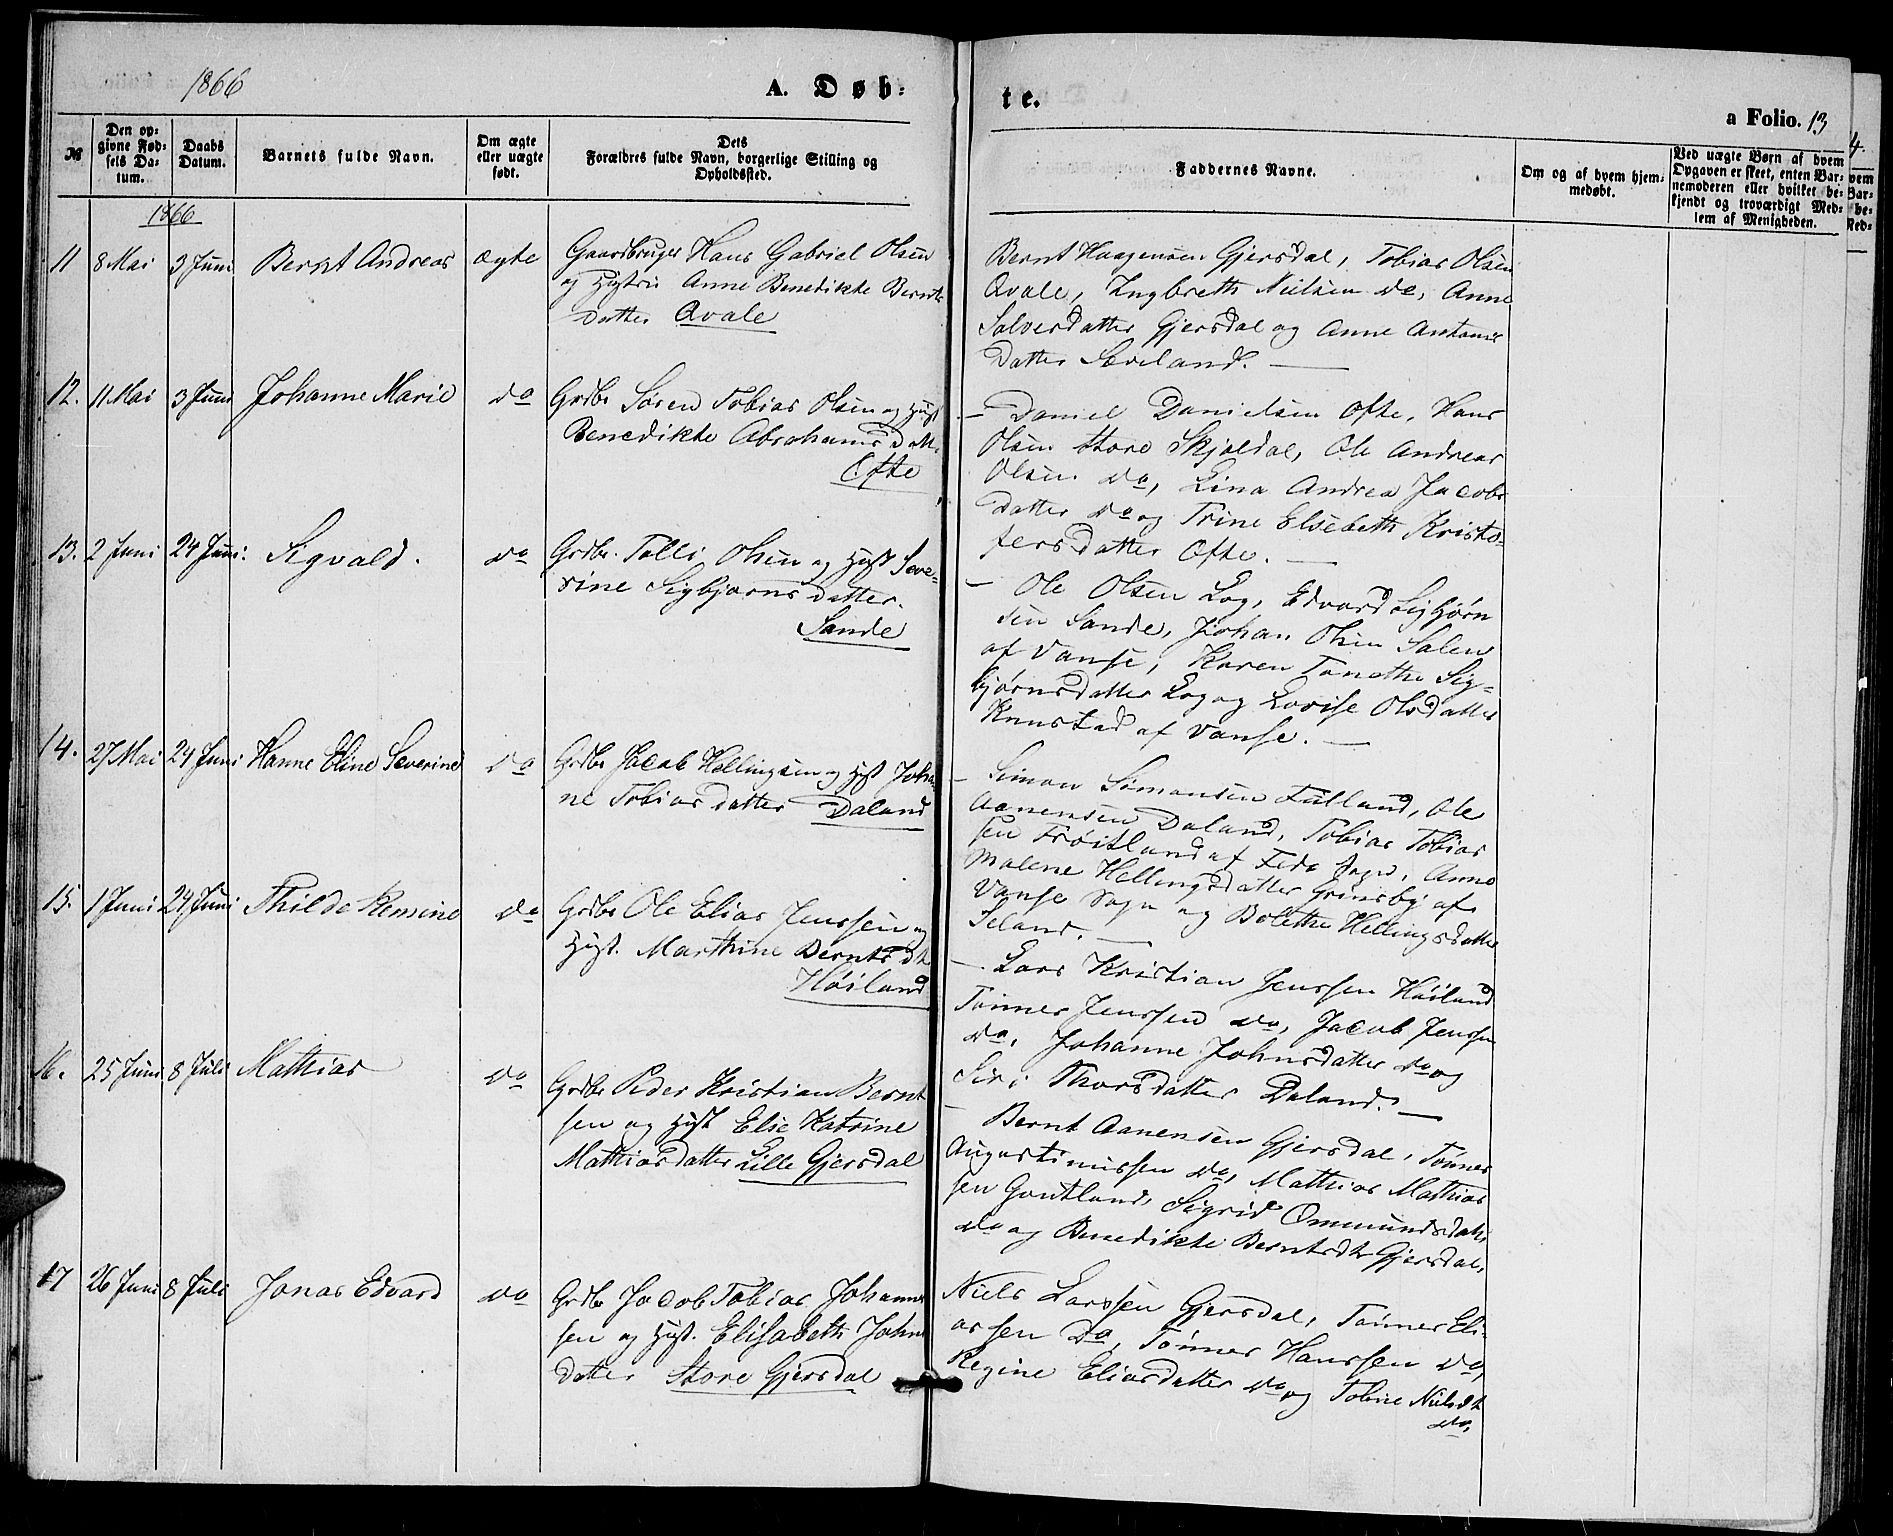 1866
A. Døb-
te.
a Folio. 13
4.
№
Den op-
givne Fød-
sels Da-
tum.
Daabs
Datum.
Barnets fulde Navn.
Om ægte
eller uægte
født.
Dets
Forældres fulde Navn, borgerlige Stilling og
Opholdssted.
Faddernes Navne.
Om og af hvem hjem-
medøbt.
Ved uægte Børn af hvem
Opgaven er skeet, enten Bar-
nemoderen eller hvilket be-
kjendt og troværdigt Med-
lem af Menigheden.
1866
11 8 Mai 3 Juni Bernt Andreas ægte Gaardbruger Hans Gabriel Olsen
og Hustru Anne Benedikte Bernts
datter Qvale
Bernt Haagensen Gjersdal, Tobias Olsen
Qvale, Ingbreth Nielsen do, Anne
Salvesdatter Gjersdal og Anne Antonis
datter Sæveland. —
12. 11 Mai 3 Juni Johanne Marie do Grdbr Søren Tobias Olsen og Hust
Benedikte Abrahamsdatt.
Ofte
— Daniel Danielsen Ofte, Hans
Olsen Store Skjoldal, Ole Andreas
Olsen do, Lina Andrea Jacobs
datter do og Trine Elsebeth Kristo-
fersdatter Ofte. —
13. 2 Juni 24 Juni. Sigvald. do Grdbr. Tolli Olsen og Hust Seve-
rine Sigbjørnsdatter.
Sande
— Ole Olsen Log, Edvard Sigbjørn
sen Sande, Johan Olsen Salen
af Vanse, Karen Tonethe Sig-
bjørnsdatter Log og Lovise Olsdatter
Knustad af Vanse. —
14. 27 Mai 24 Juni Hanne Eline Severine do Grdbr Jacob Hellingsen og Hust Johan
ne Tobiasdatter Daland
— Simon Simonsen Fuland, Ole
Aanensen Daland, Tobias Tobias
sen Frøitland af Feda Sogn, Anne
Malene Hellingsdatter Grinsby af
Vanse Sogn og Bolethe Hellingsdatter
Seland. —
15. 1 Juni 24 Juni Thilde Remine do Grdbr Ole Elias Jenssen og
Hust. Marthine Berntsdt
Høiland
— Lars Kristian Jenssen Høiland
Tønnes Jenssen do, Jacob Jenssen
do, Johanne Johnsdatter do og
Siri Thorsdatter Daland. —
16. 25 Juni 8 Juli Mathias do Grdbr Peder Kristian Bernt
sen og Hust Else Katrine
Mathiasdatter Lille Gjersdal
— Bernt Aanensen Gjersdal, Tønnes
Augustinussen do, Mathias Mathias
sen Gautland, Sigrid Ommundsdatter
do og Benedikte Berntsdt Gjersdal,
17 26 Juni 8 Juli Jonas Edvard do Grdbr Jacob Tobias Johannes
sen og Hust. Elisabeth Johns
datter Store Gjersdal
Niels Larssen Gjersdal, Tønnes Eli-
assen do, Tønnes Hanssen do,
Regine Eliasdatter do og Tobine Nielsdt
do,